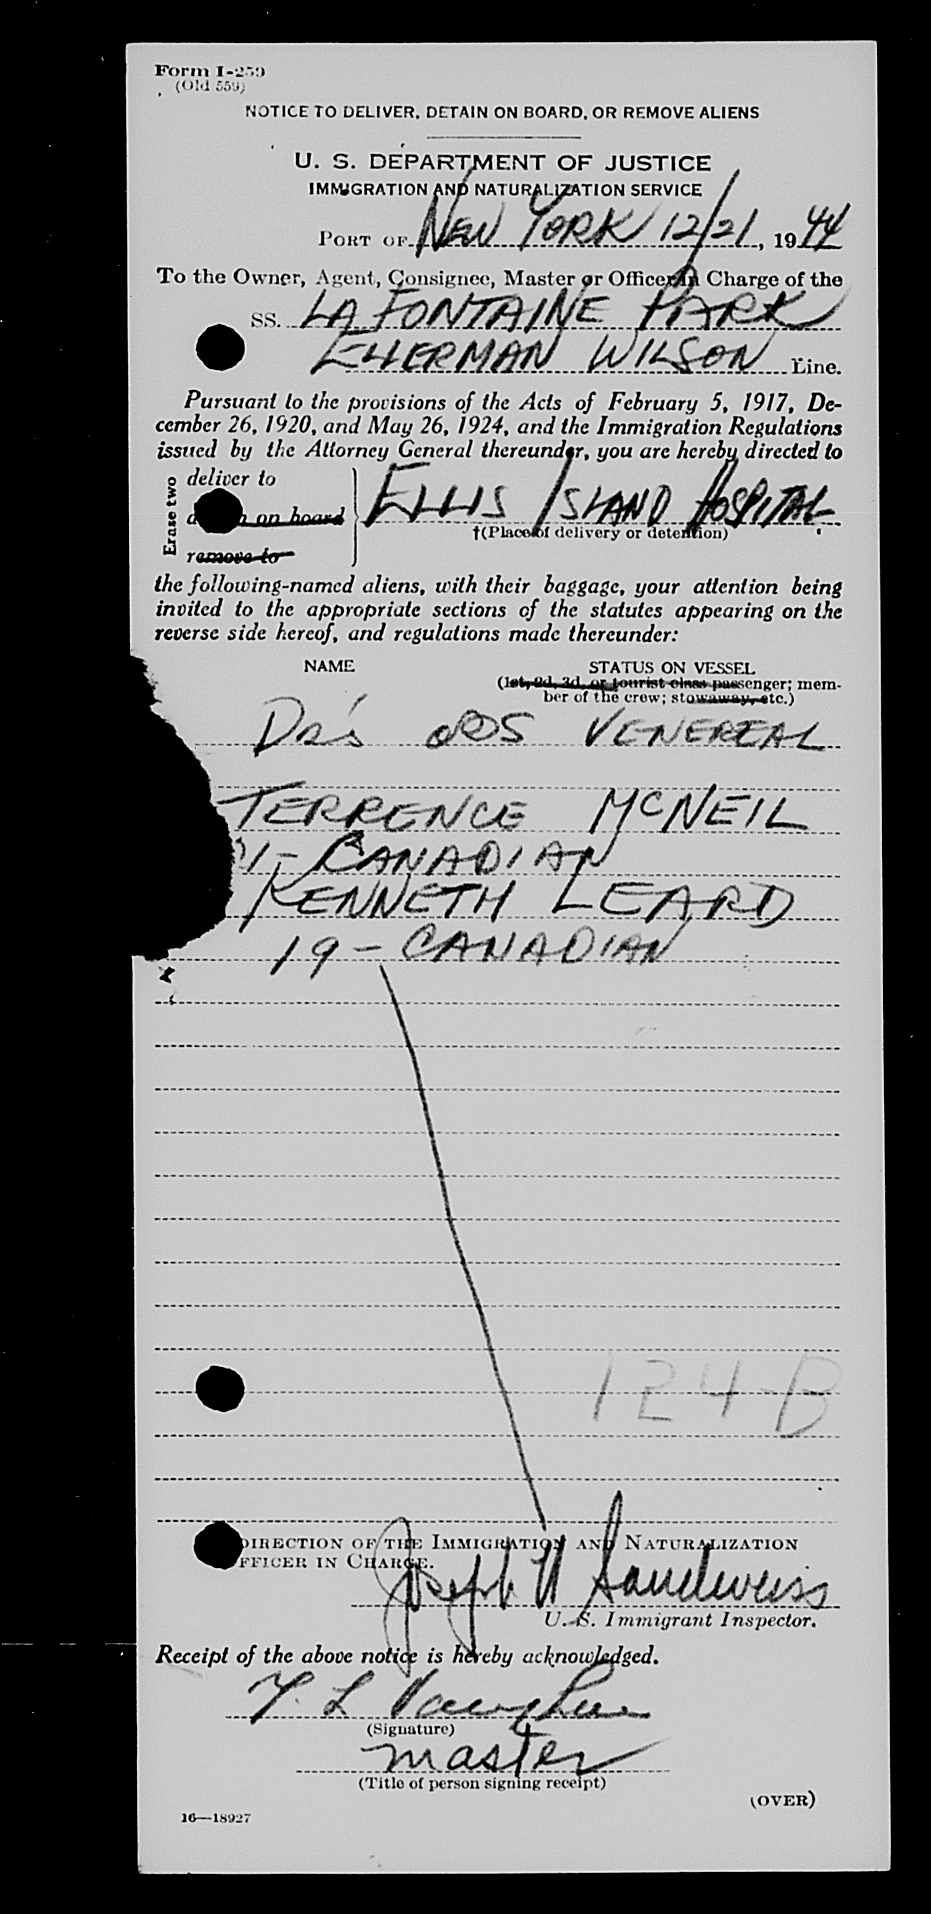 Form I-259
(Old 559)
NOTICE TO DELIVER, DETAIN ON BOARD, OR REMOVE ALIENS
U. S. DEPARTMENT OF JUSTICE
IMMIGRATION AND NATURALIZATION SERVICE
PORT OF NEW YORK 12/21, 1944
To the Owner, Agent, Consignee, Master or Officer in Charge of the
SS. LA FONTAINE PARK
ELLERMAN WILSON Line.
Pursuant to the provisions of the Acts of February 5, 1917, De-
cember 26, 1920, and May 26, 1924, and the Immigration Regulations
issued by the Attorney General thereunder, you are hereby directed to
Erase two
deliver to
on board ELLIS ISLAND HOSPITAL
†(Place of delivery or detention)
remove to
the following-named aliens, with their baggage, your attention being
invited to the appropriate sections of the statutes appearing on the
reverse side hereof, and regulations made thereunder:
NAME STATUS ON VESSEL
(1st, 2d, 3d, or tourist class passenger; mem-
ber of the crew; stowaway, etc.)
VENEREAL
TERRENCE MCNEIL
CANADIAN
KENNETH LEARD
19 - CANADIAN
124-B
DIRECTION OF THE IMMIGRATION AND NATURALIZATION
OFFICER IN CHARGE.
Joseph Sandweiss
U. S. Immigrant Inspector.
Receipt of the above notice is hereby acknowledged.
L
(Signature)
master
(Title of person signing receipt)
(OVER)
16—18927